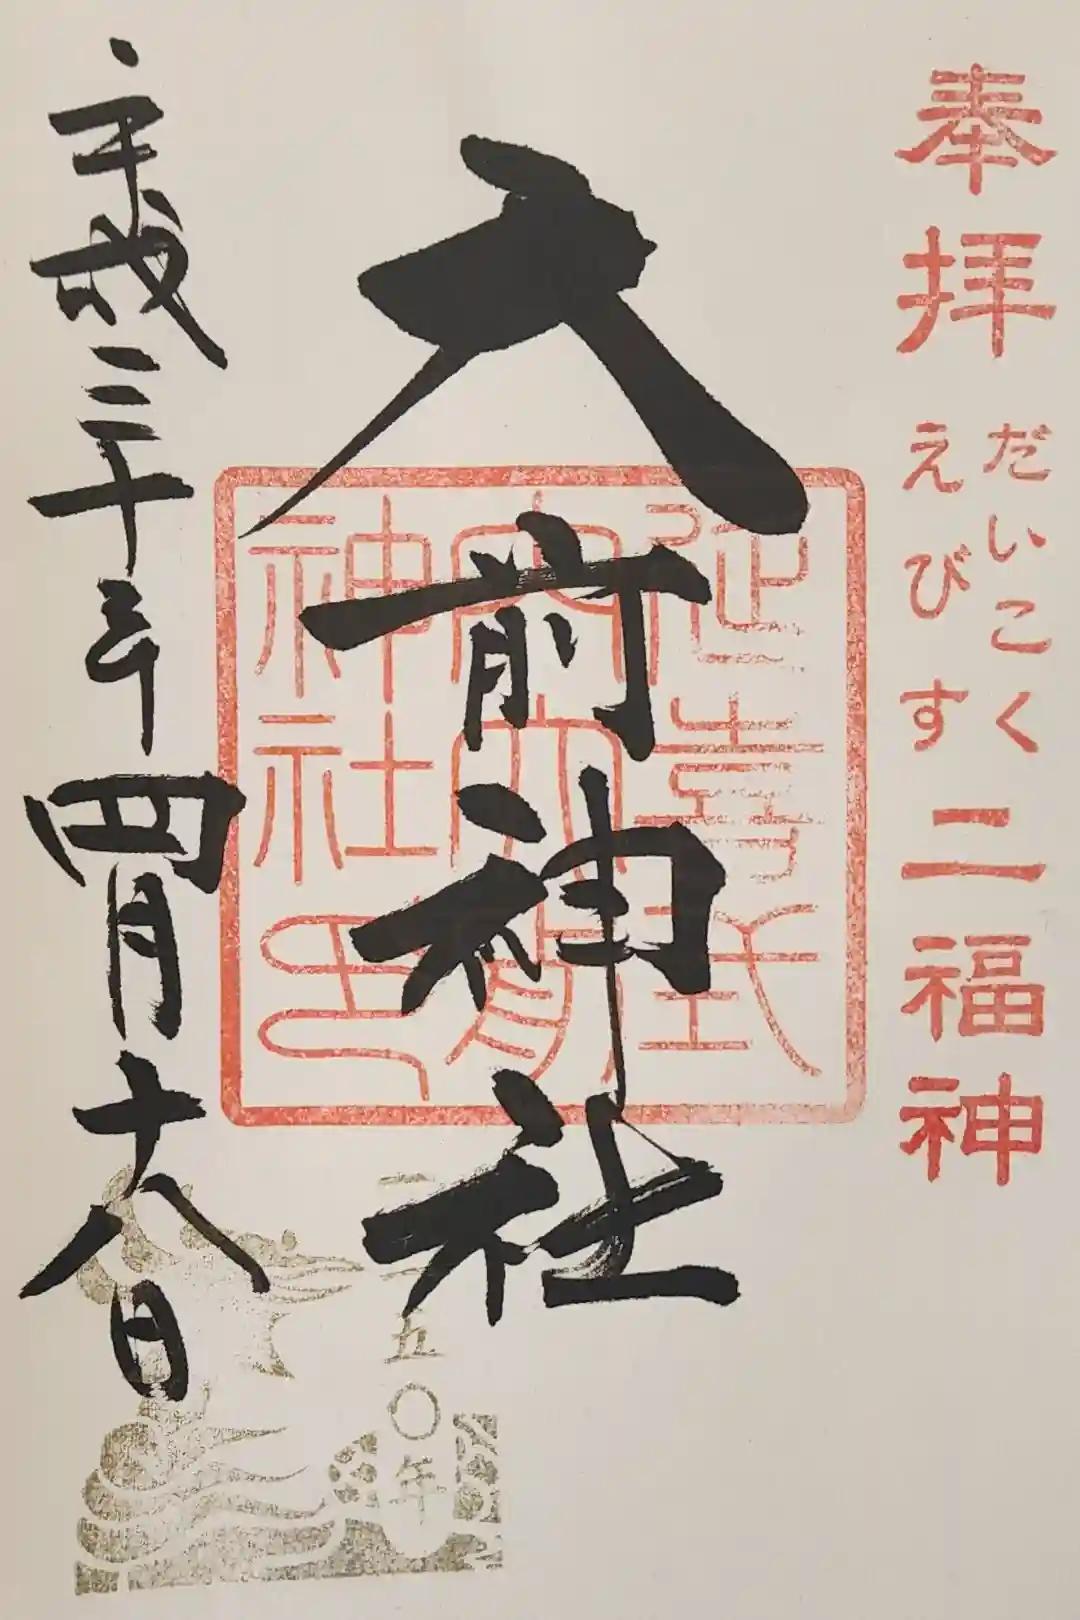 奉拝
だいこく
えびす
二福神
大前神社
延喜式
内大前
神社印
平成三十年四月十八日
五〇年